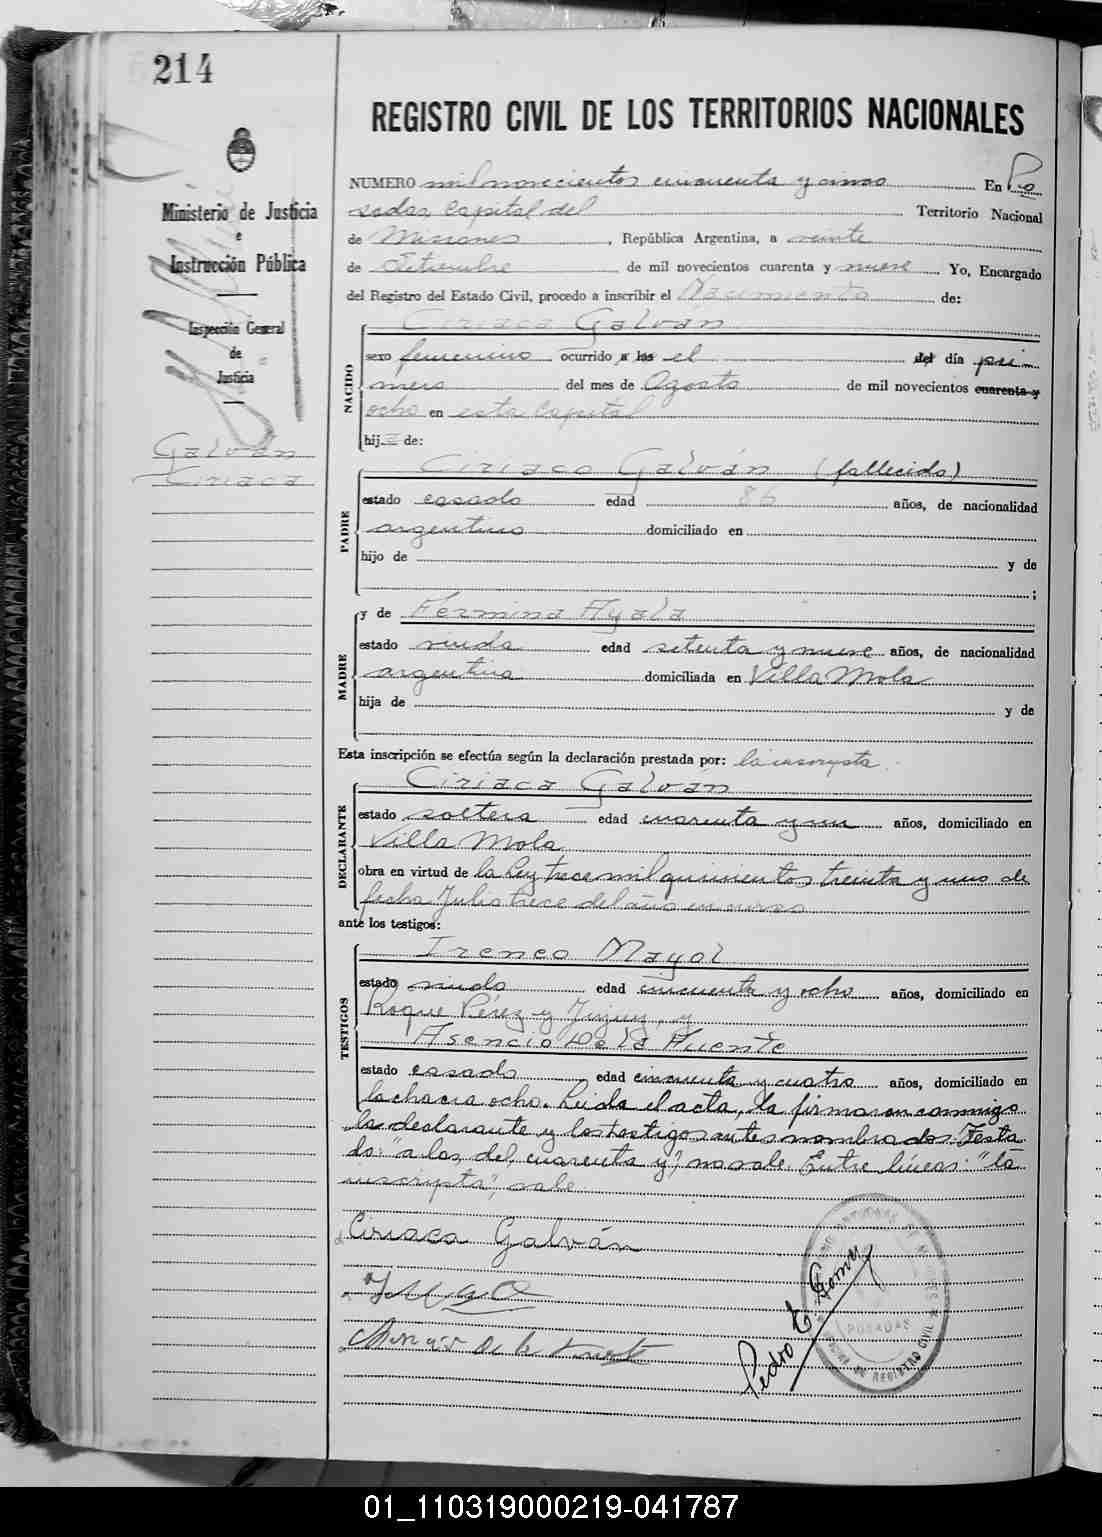 214
REGISTRO CIVIL DE LOS TERRITORIOS NACIONALES
Ministerio de Justicia
e
Instrucción Pública
Inspección General
de
Justicia
Galván
Ciriaca
NUMERO mil novecientos cincuenta y cinco En Po
sadas, Capital del Territorio Nacional
de Misiones, República Argentina, a veinte
de Setiembre de mil novecientos cuarenta y nueve Yo, Encargado
del Registro del Estado Civil, procedo a inscribir el Nacimiento de:
NACIDO
Ciriaca Galván
sexo femenino ocurrido a las el del día pri-
mero del mes de Agosto de mil novecientos cuarenta y
ocho en esta Capital
hij de:
PADRE
Ciriaco Galván (fallecido)
estado casado edad 86 años, de nacionalidad
argentino domiciliado en
hijo de y de
;
MADRE
y de Fermina Ayala
estado viuda edad setenta y nueve años, de nacionalidad
argentina domiciliada en Villa Mola
hija de y de
Esta inscripción se efectúa según la declaración prestada por: la inscripta
DECLARANTE
Ciriaca Galván
estado soltera edad cuarenta y un años, domiciliado en
Villa Mola
obra en virtud de la Ley trece mil quinientos treinta y uno de
fecha Julio trece del año en curso
ante los testigos:
TESTIGOS
Ireneo Mayol
estado viudo edad cincuenta y ocho años, domiciliado en
Roque Pérez y Jujuy, y
Asencio De la Fuente
estado casado edad cincuenta y cuatro años, domiciliado en
la chacra ocho. Leída el acta, la firmaron conmigo
la declarante y los testigos antes nombrados. Testa
do: "a las, del, cuarenta y", no vale. Entre líneas: "la
inscripta", vale
Ciriaca Galván
Pedro E. Gomez
POSADAS
REGISTRO CIVIL
01_110319000219-041787